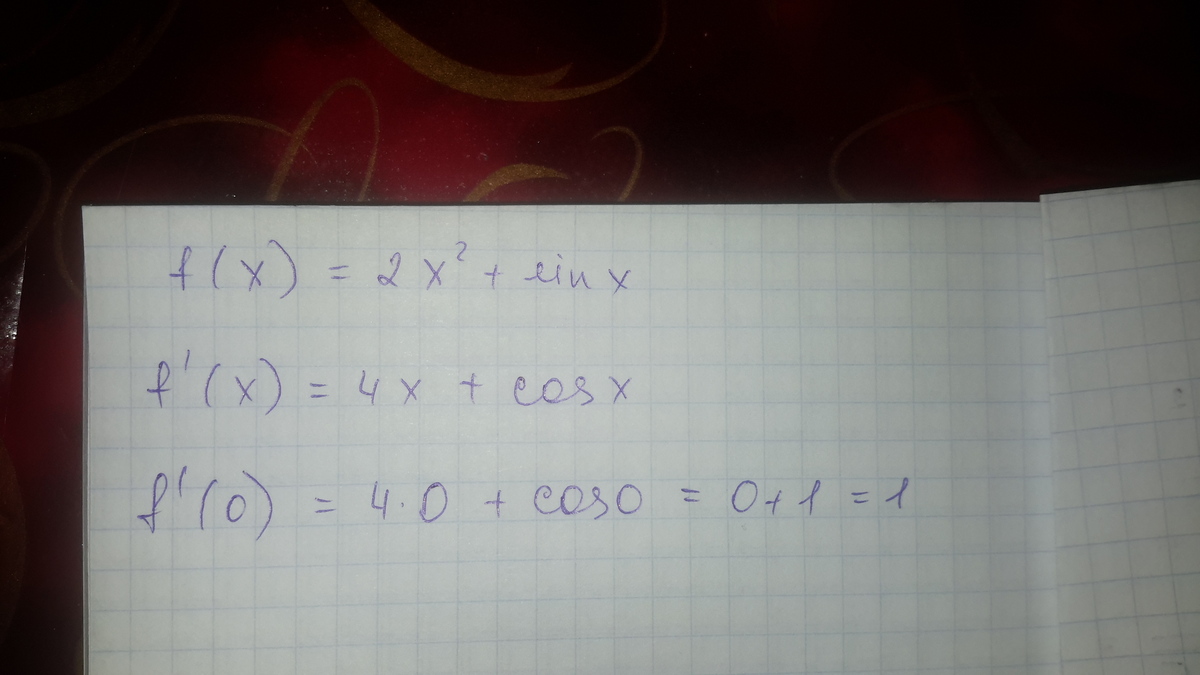 f(x) = 2x² + sin x
f'(x) = 4x + cos x
f'(0) = 4·0 + cos0 = 0+1 = 1